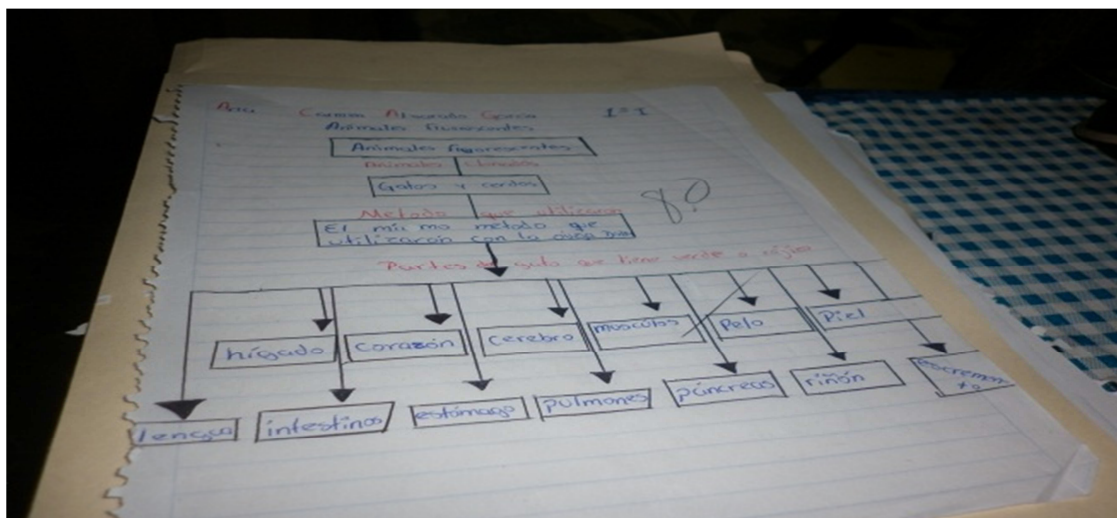 Ana Carmen Alvarado Garcia 1°I
Animales fluorescentes
Animales fluorescentes
Animales Clonados
Gatos y cerdos
Metodo que utilizaron
El mismo metodo que
utilizaron con la oveja
Partes de gato que tiene verde o rojizo
hígado corazón cerebro musculos Pelo Piel
lengua intestinos estómago pulmones páncreas riñón escremento